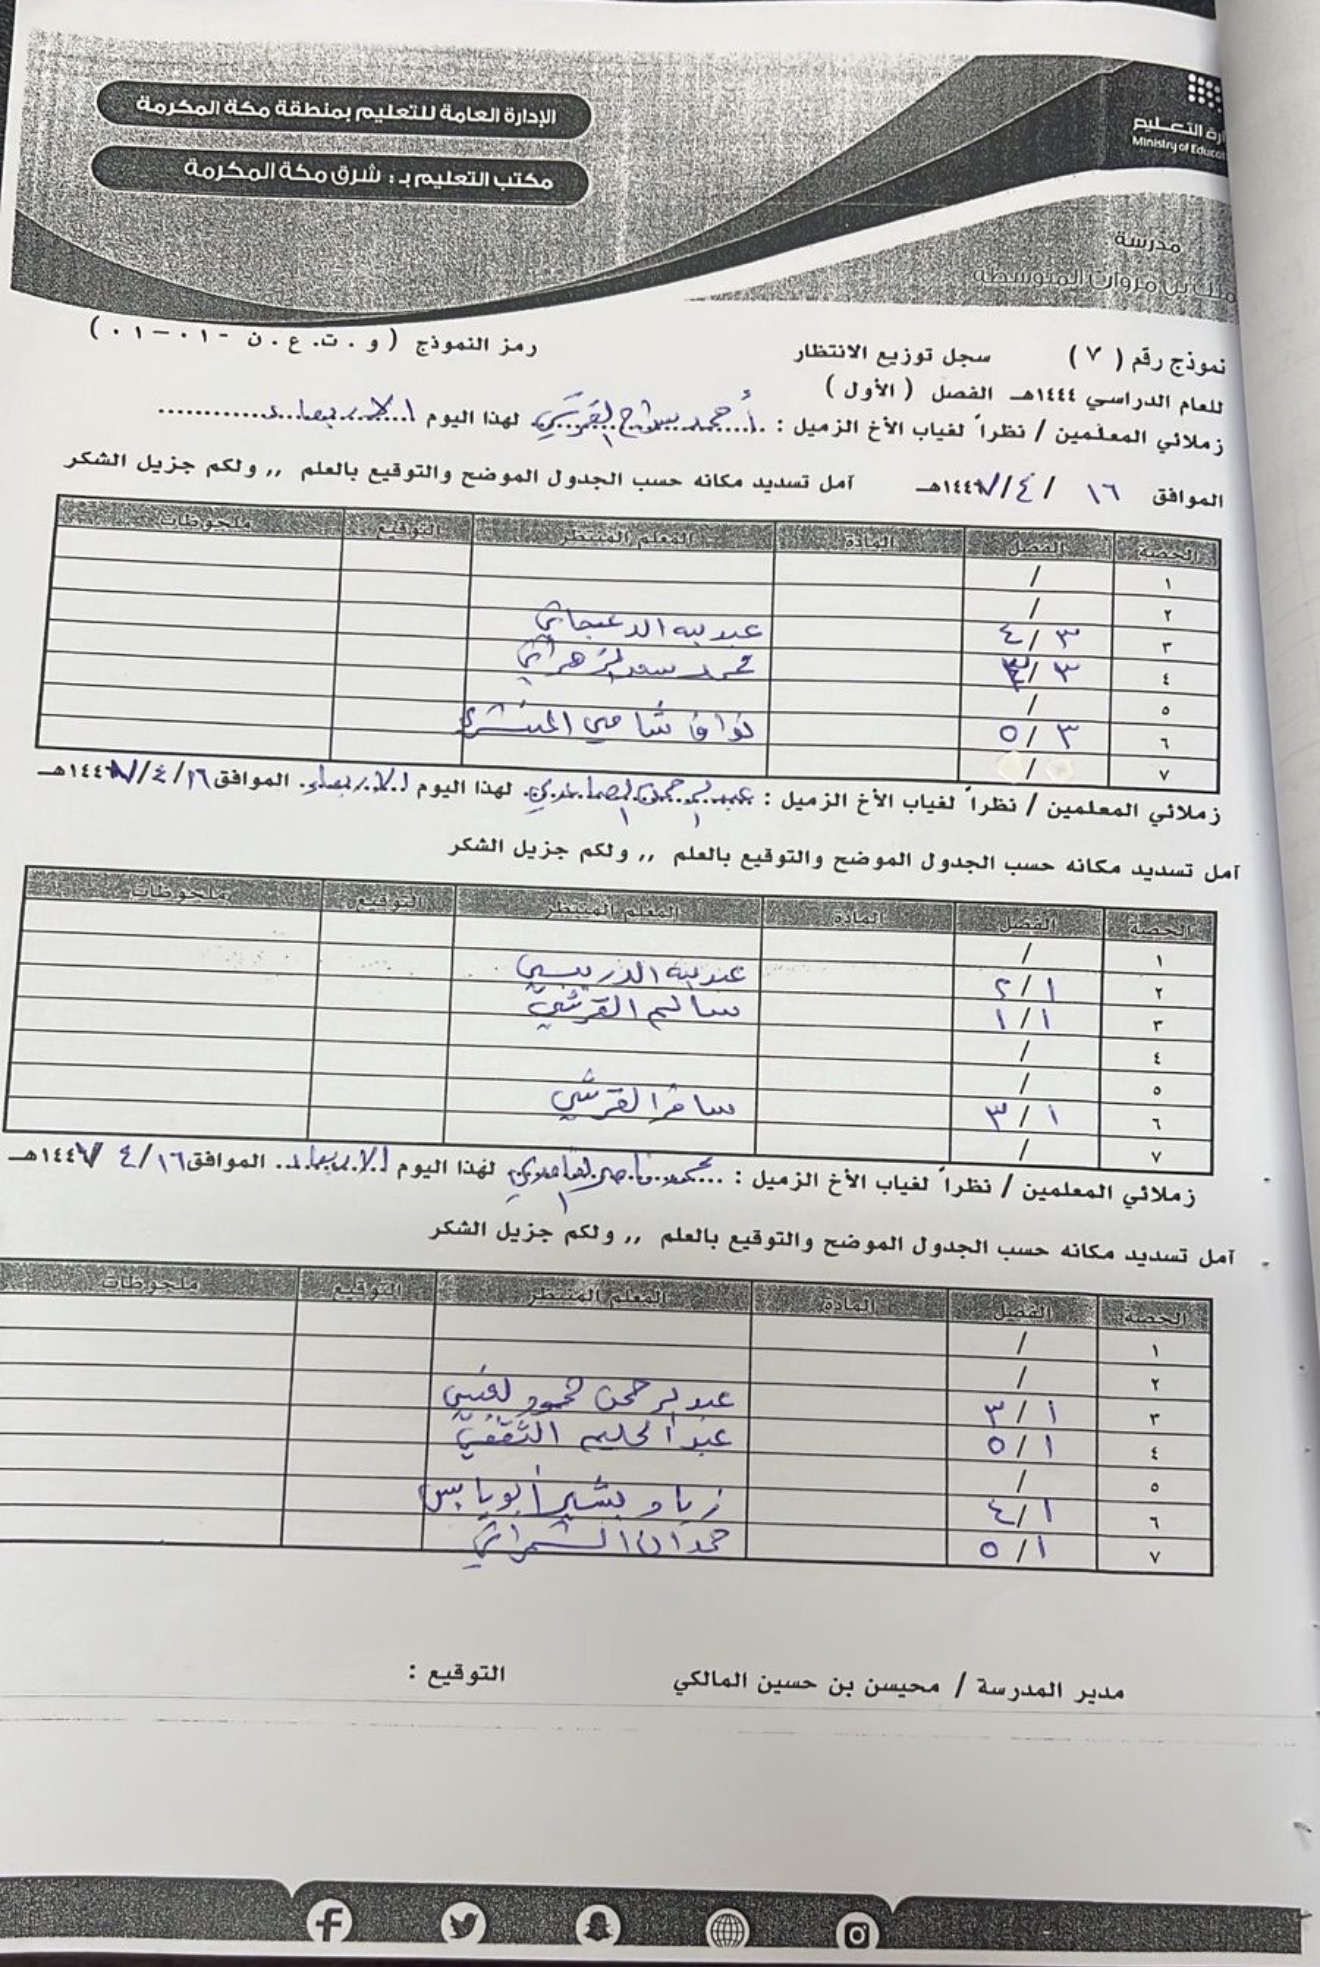 الإدارة العامة للتعليم بمنطقة مكة المكرمة
مكتب التعليم بـ : شرق مكة المكرمة
Ministry of Educat
مدرسة
بن مروان المتوسطة
نموذج رقم ( ٧ ) سجل توزيع الانتظار رمز النموذج ( و . ت . ع . ن - ٠١ - ٠١ )
للعام الدراسي ١٤٤٤هـ الفصل ( الأول )
زملائي المعلمين / نظراً لغياب الأخ الزميل : أحمد سراج القرشي لهذا اليوم الاربعاء
الموافق ١٦ / ٤ / ١٤٤٧هـ آمل تسديد مكانه حسب الجدول الموضح والتوقيع بالعلم ,, ولكم جزيل الشكر
الحصة الفصل المادة المعلم المنتظر التوقيع ملحوظات
١ /
٢ /
٣ ٣ / ٤ عبدالله الدعجاني
٤ ٣ / محمد سعد الزهراني
٥ /
٦ ٣ / ٥ نواف شامي المنتشري
٧
زملائي المعلمين / نظراً لغياب الأخ الزميل : عبدالرحمن الصاعدي لهذا اليوم الاربعاء الموافق ١٦ / ٤ / ١٤٤٧هـ
آمل تسديد مكانه حسب الجدول الموضح والتوقيع بالعلم ,, ولكم جزيل الشكر
الحصة الفصل المادة المعلم المنتظر التوقيع ملحوظات
١ /
٢ ١ / ٢ عبدالله الدريبي
٣ ١ / ١ سالم القرشي
٤ /
٥ /
٦ ١ / ٣ سافر القرشي
٧ /
زملائي المعلمين / نظراً لغياب الأخ الزميل : محمد ناصر الغامدي لهذا اليوم الاربعاء الموافق ١٦ / ٤ / ١٤٤٧هـ
آمل تسديد مكانه حسب الجدول الموضح والتوقيع بالعلم ,, ولكم جزيل الشكر
الحصة الفصل المادة المعلم المنتظر التوقيع ملحوظات
١ /
٢ /
٣ ١ / ٣ عبدالرحمن محمود
٤ ١ / ٥ عبدالحليم الثقفي
٥ /
٦ ١ / ٤ زياد بشير
٧ ١ / ٥ حمدان الشمراني
مدير المدرسة / محيسن بن حسين المالكي التوقيع :